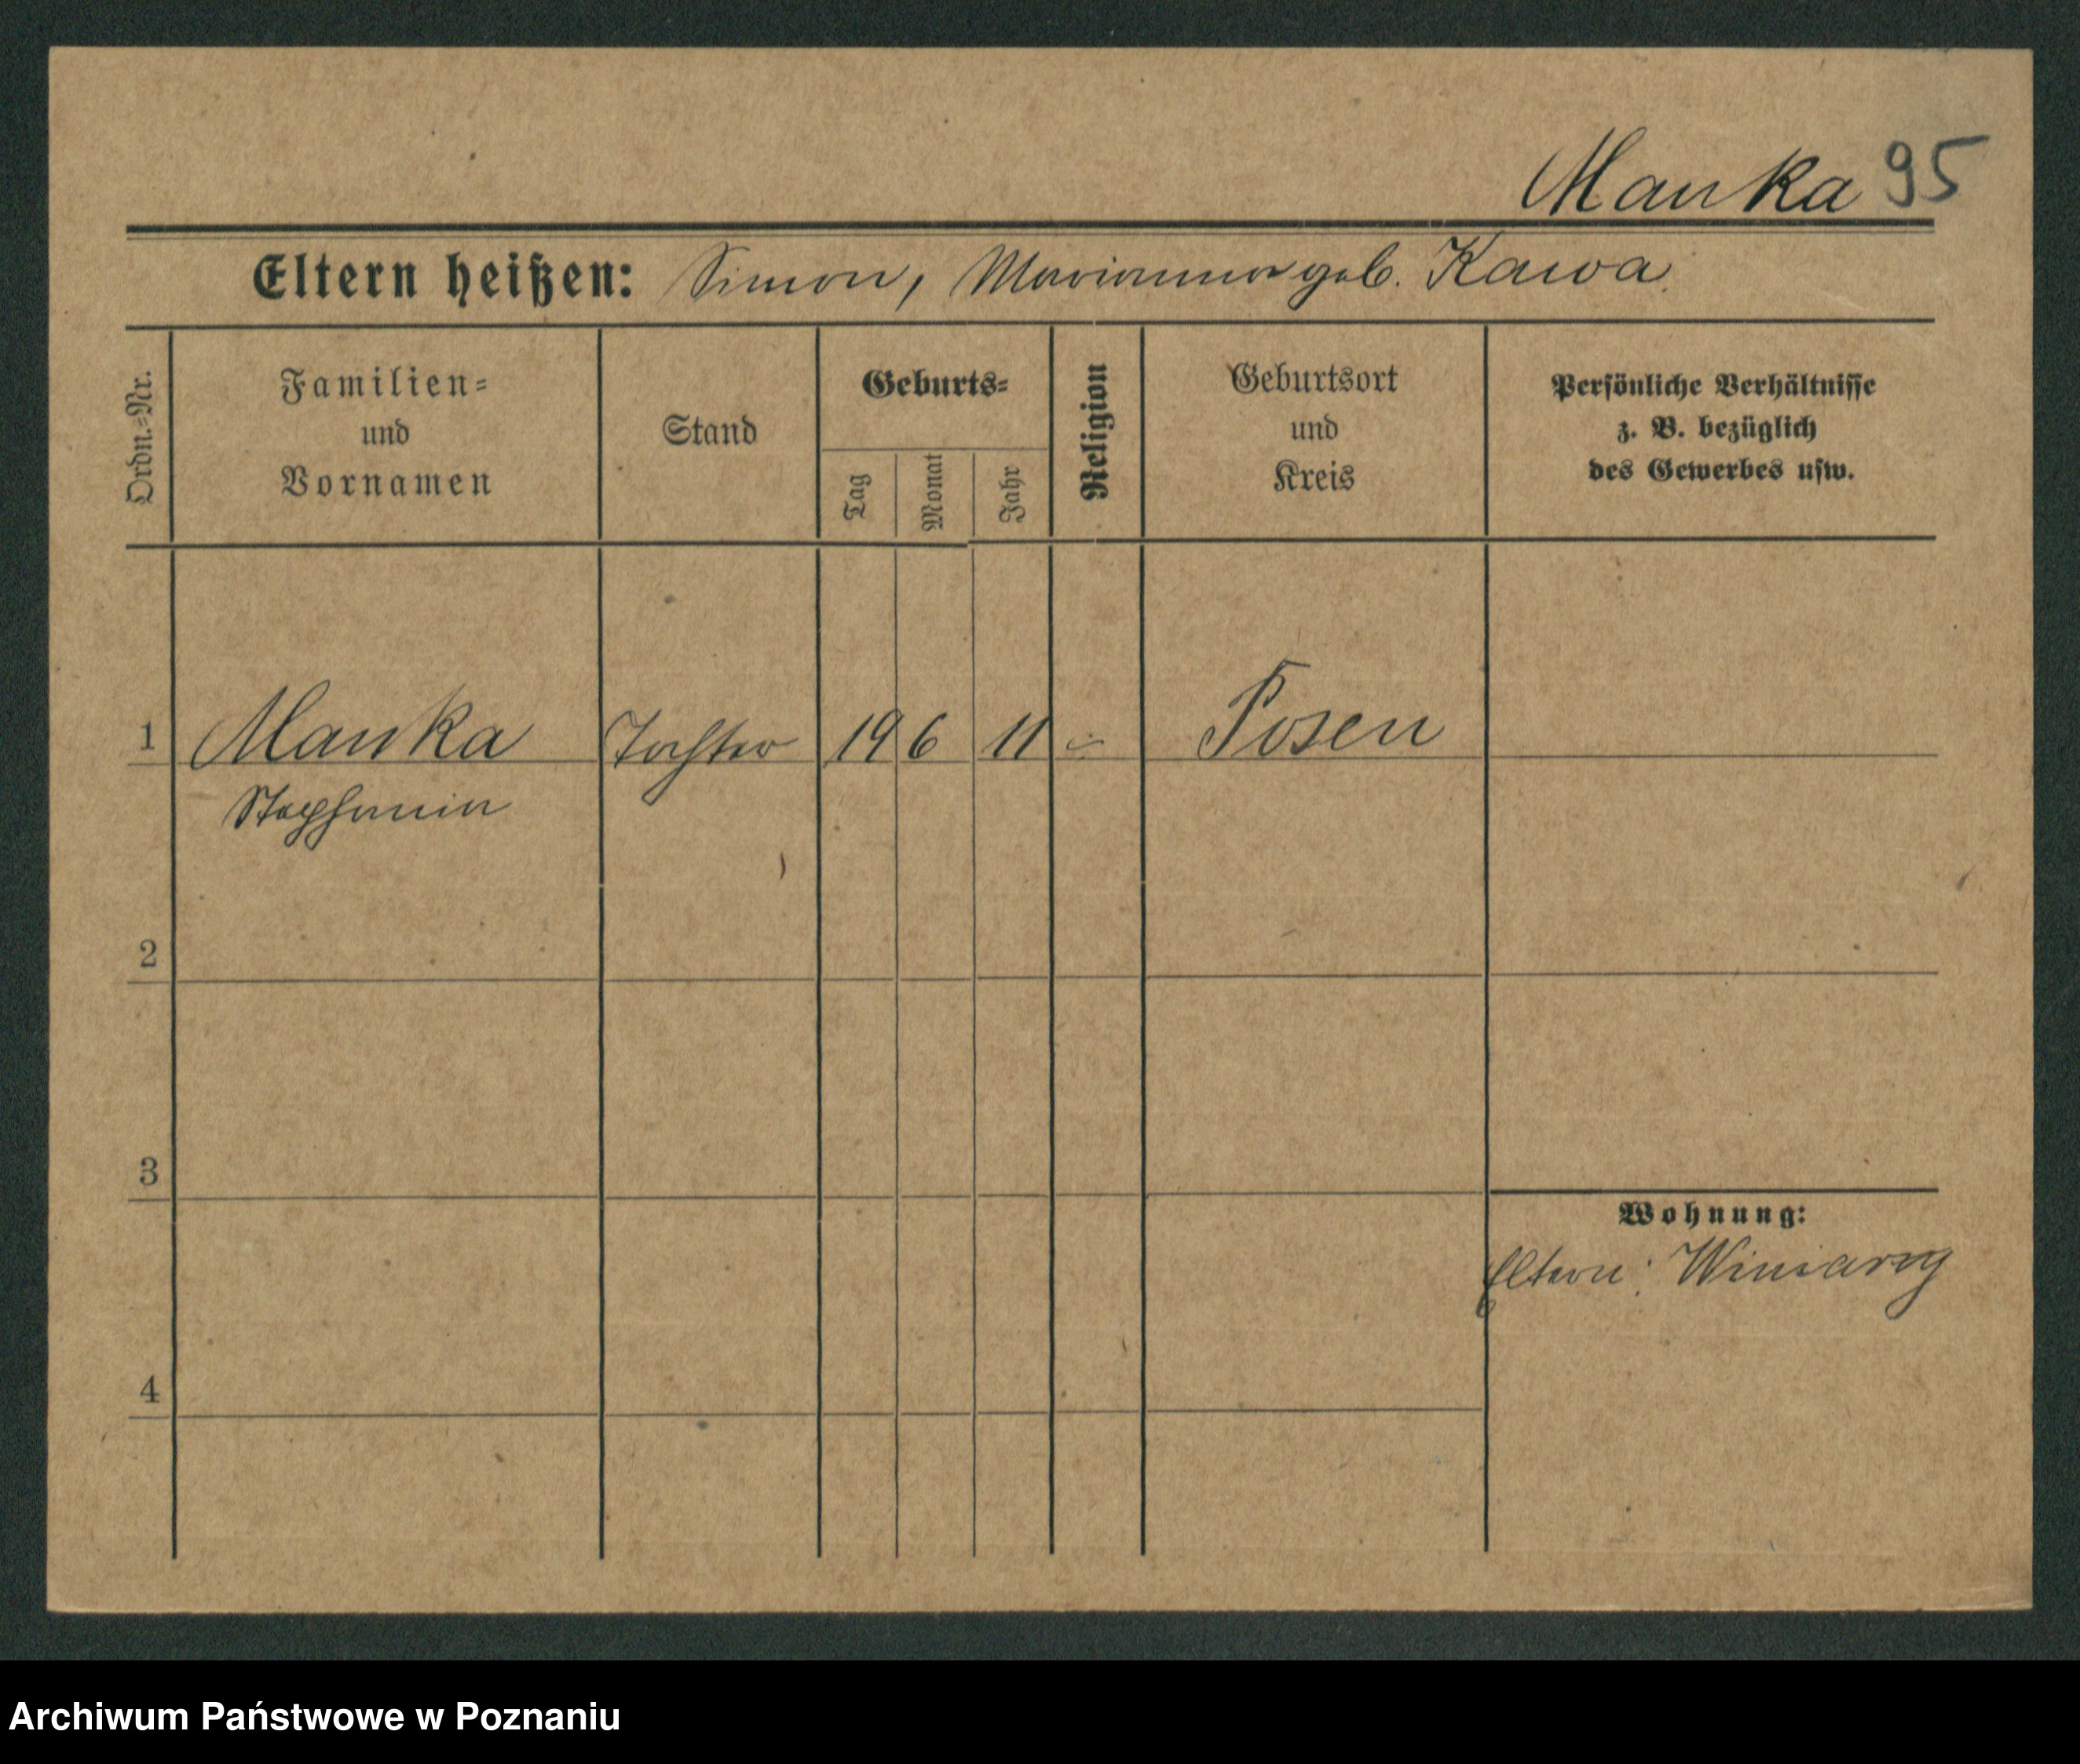 Manka 95
Eltern heißen: Simon, Marianna geb. Kawa.
Ordn.=Nr.
Familien=
und
Vornamen
Stand
Geburts=
Tag
Monat
Jahr
Religion
Geburtsort
und
Kreis
Persönliche Verhältnisse
z. B. bezüglich
des Gewerbes usw.
1 Manka Tochter 19 6 11 Posen
Stephania
2
3
Wohnung:
Eltern: Winiary
4
Archiwum Państwowe w Poznaniu